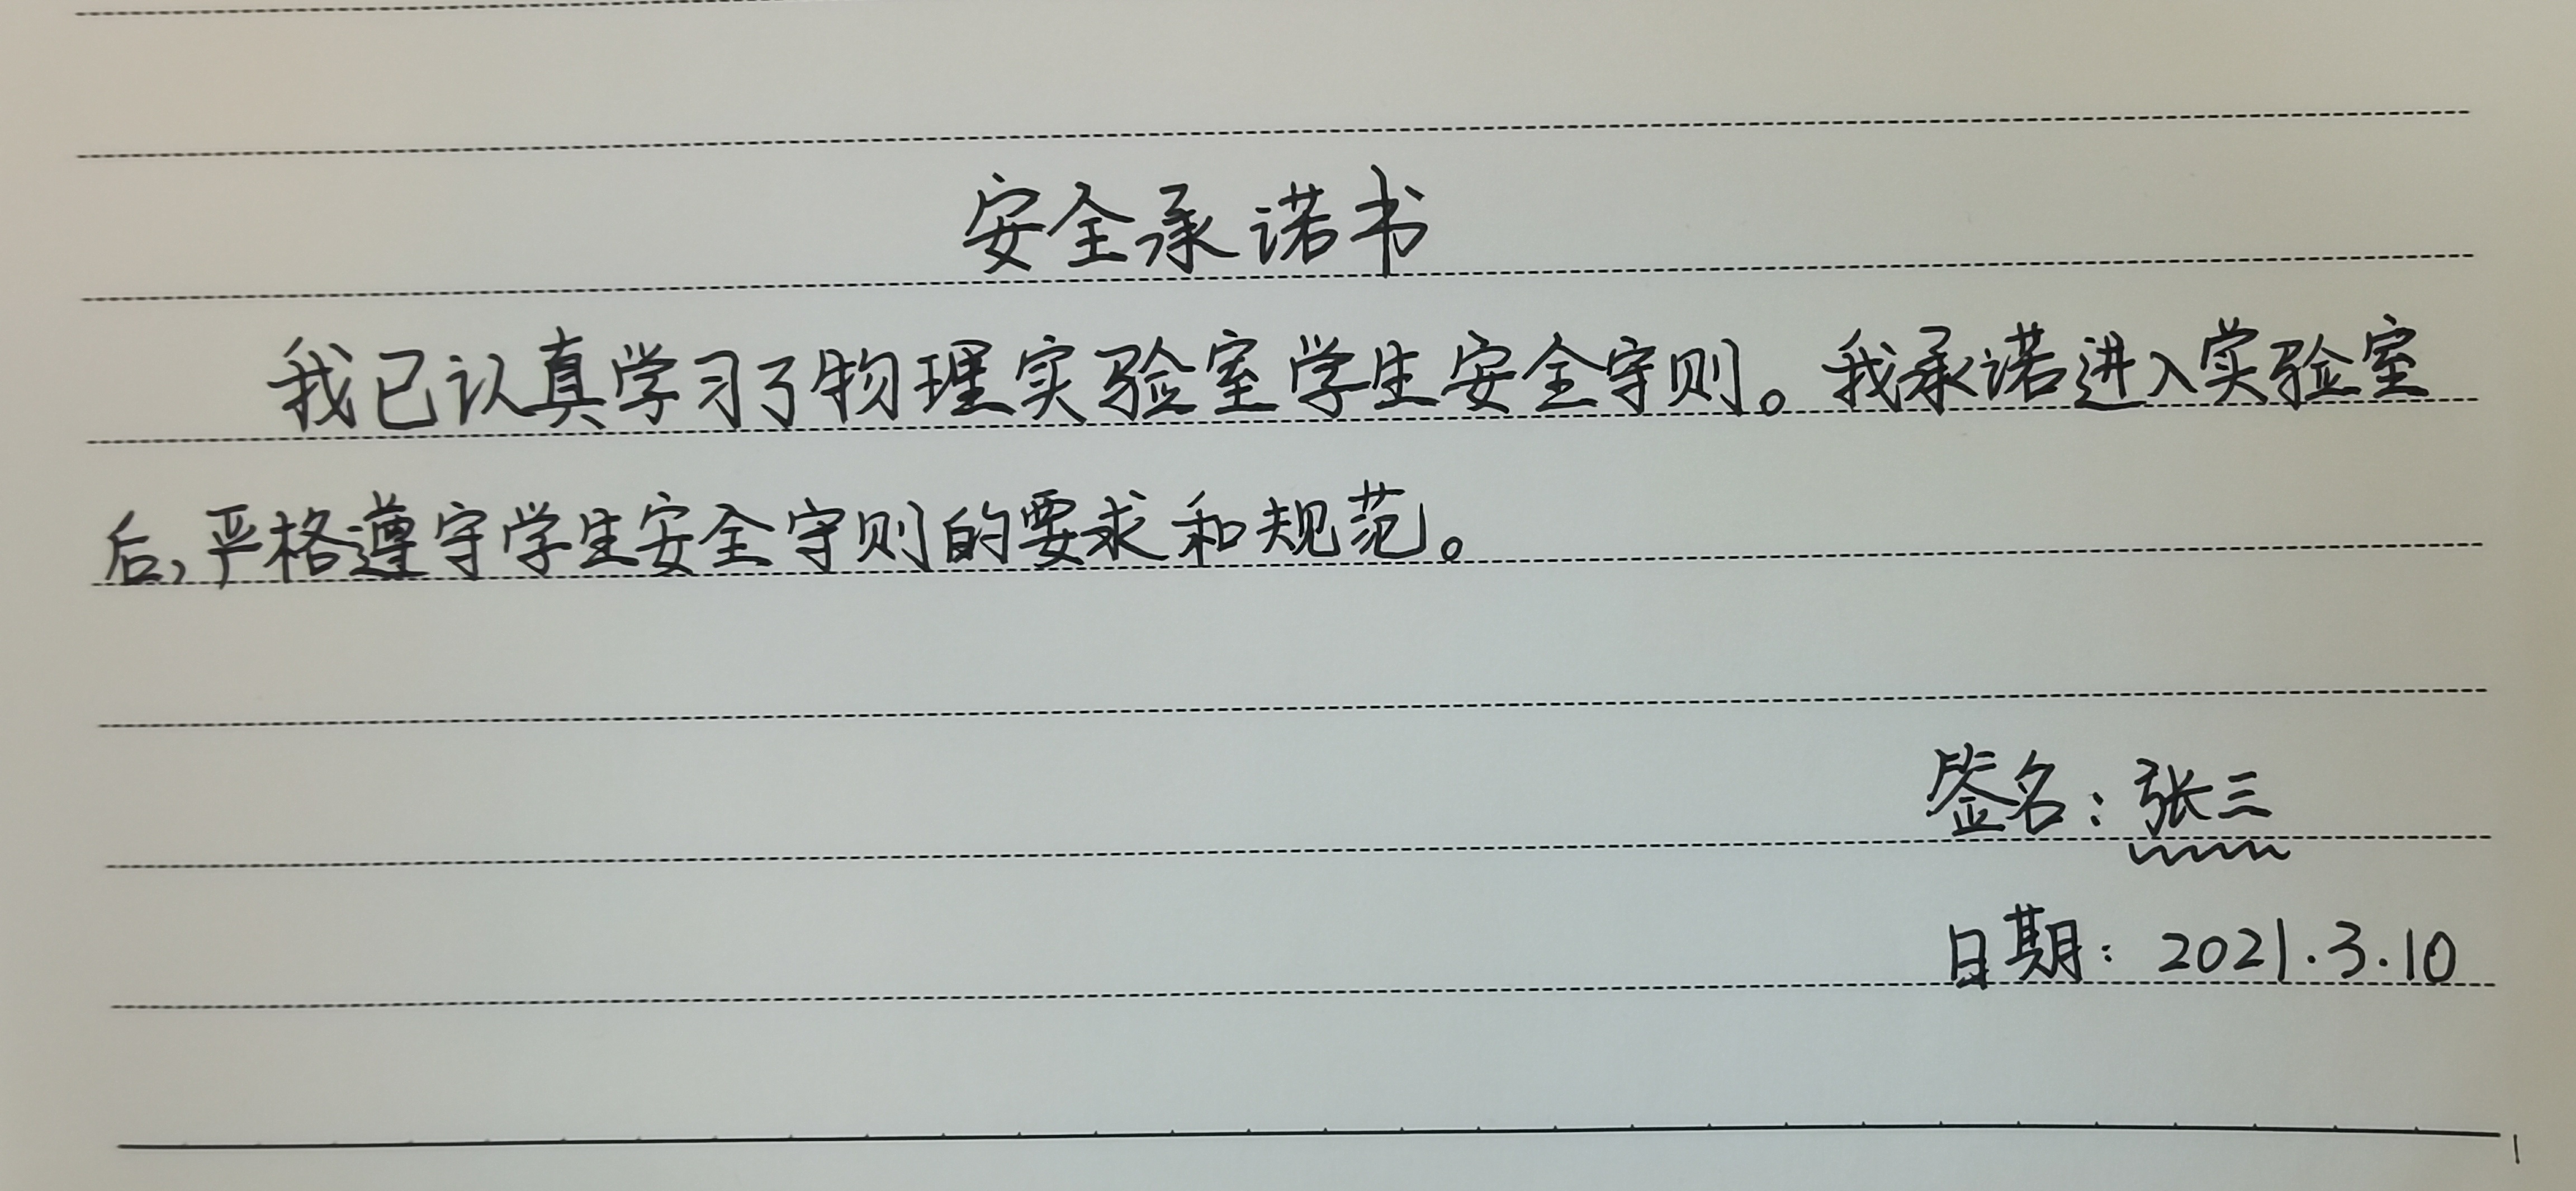 安全承诺书
我已认真学习了物理实验室学生安全守则。我承诺进入实验室
后,严格遵守学生安全守则的要求和规范。
签名:张三
日期:2021.3.10